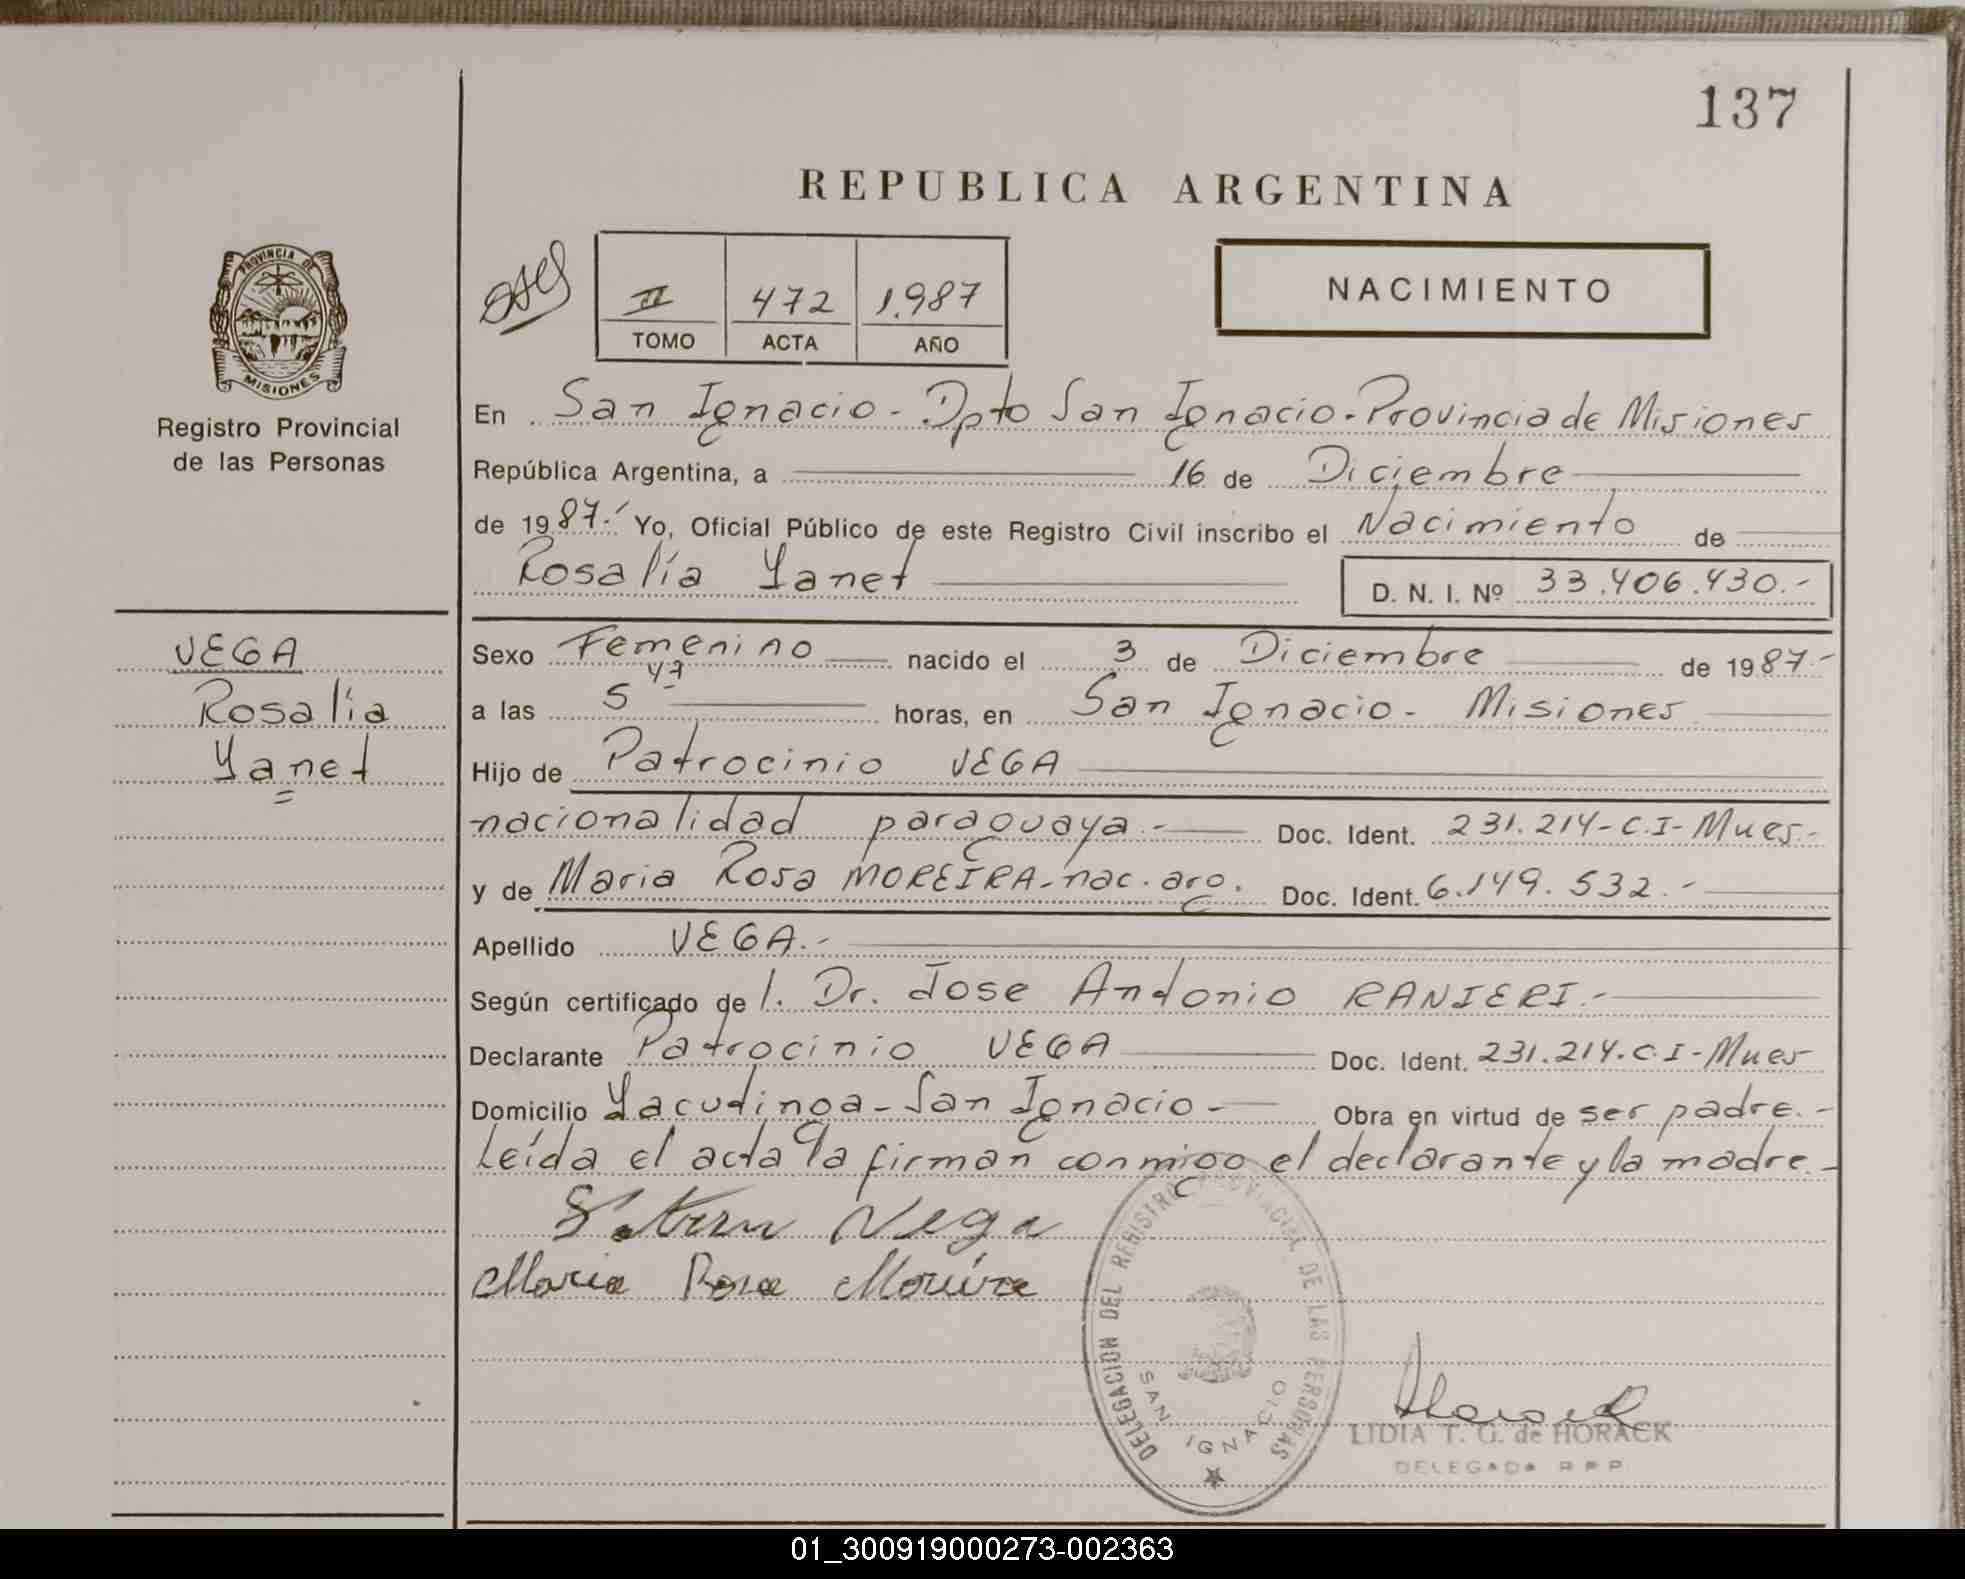 137
REPUBLICA ARGENTINA
PROVINCIA DE
MISIONES
Registro Provincial
de las Personas
II 472 1.987
TOMO ACTA AÑO
NACIMIENTO
En San Ignacio - Dpto San Ignacio - Provincia de Misiones
República Argentina, a 16 de Diciembre
de 1987.- Yo, Oficial Público de este Registro Civil inscribo el Nacimiento de
Rosalía Yanet D. N. I. Nº 33.406.430.-
VEGA
Rosalía
Yanet
Sexo Femenino nacido el 3 de Diciembre de 1987.-
a las 5 47 horas, en San Ignacio - Misiones
Hijo de Patrocinio VEGA
nacionalidad paraguaya.- Doc. Ident. 231.214-C.I-Mnes.-
y de Maria Rosa MOREIRA-nac. arg. Doc. Ident. 6.149.532.-
Apellido VEGA.-
Según certificado de l. Dr. Jose Antonio RANIERI.-
Declarante Patrocinio VEGA Doc. Ident. 231.214.C.I-Mnes
Domicilio Yacutinga - San Ignacio - Obra en virtud de ser padre.-
Leída el acta la firman conmigo el declarante y la madre.-
Vega
Maria Rosa Moreira
DELEGACION DEL REGISTRO PROVINCIAL DE LAS PERSONAS
SAN IGNACIO
LIDIA T. G. de HORACK
DELEGADA R P P
01_300919000273-002363